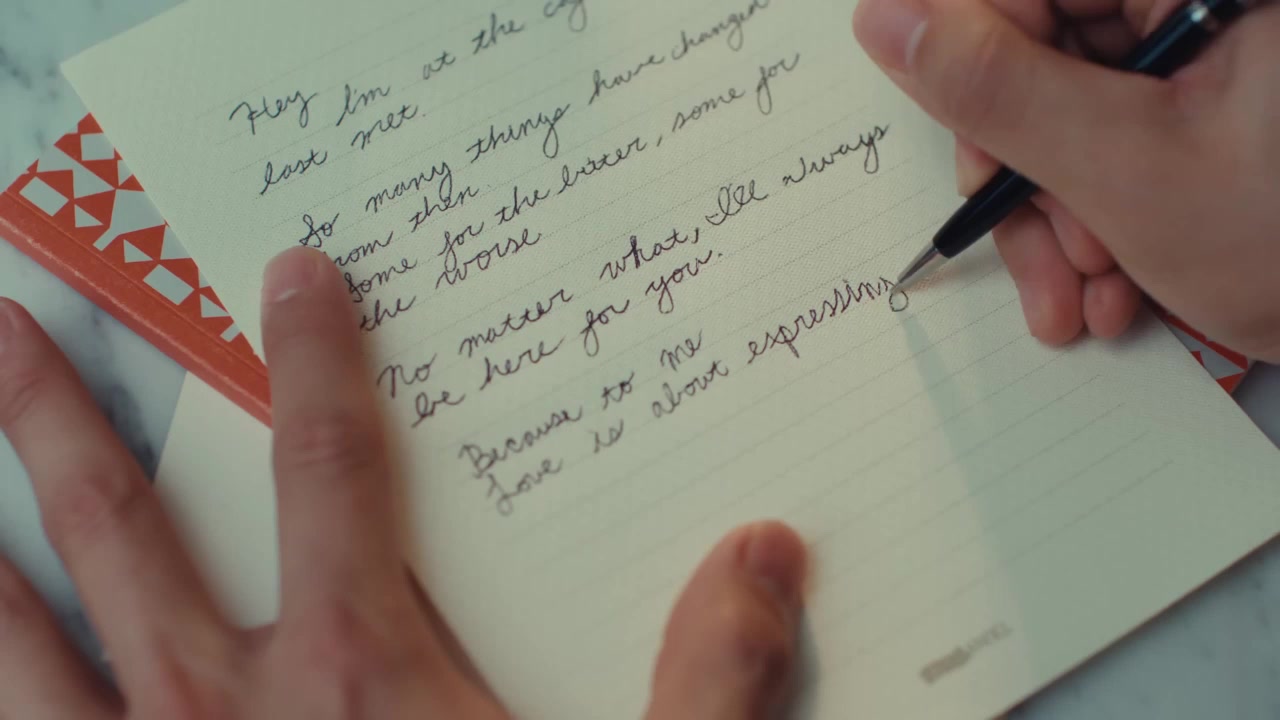 Hey I'm at the
last met.
So many things have changed
from then.
Some for the bitter, some for
the worse.
No matter what, I'll always
be here for you.
Because to me
Love is about expressing